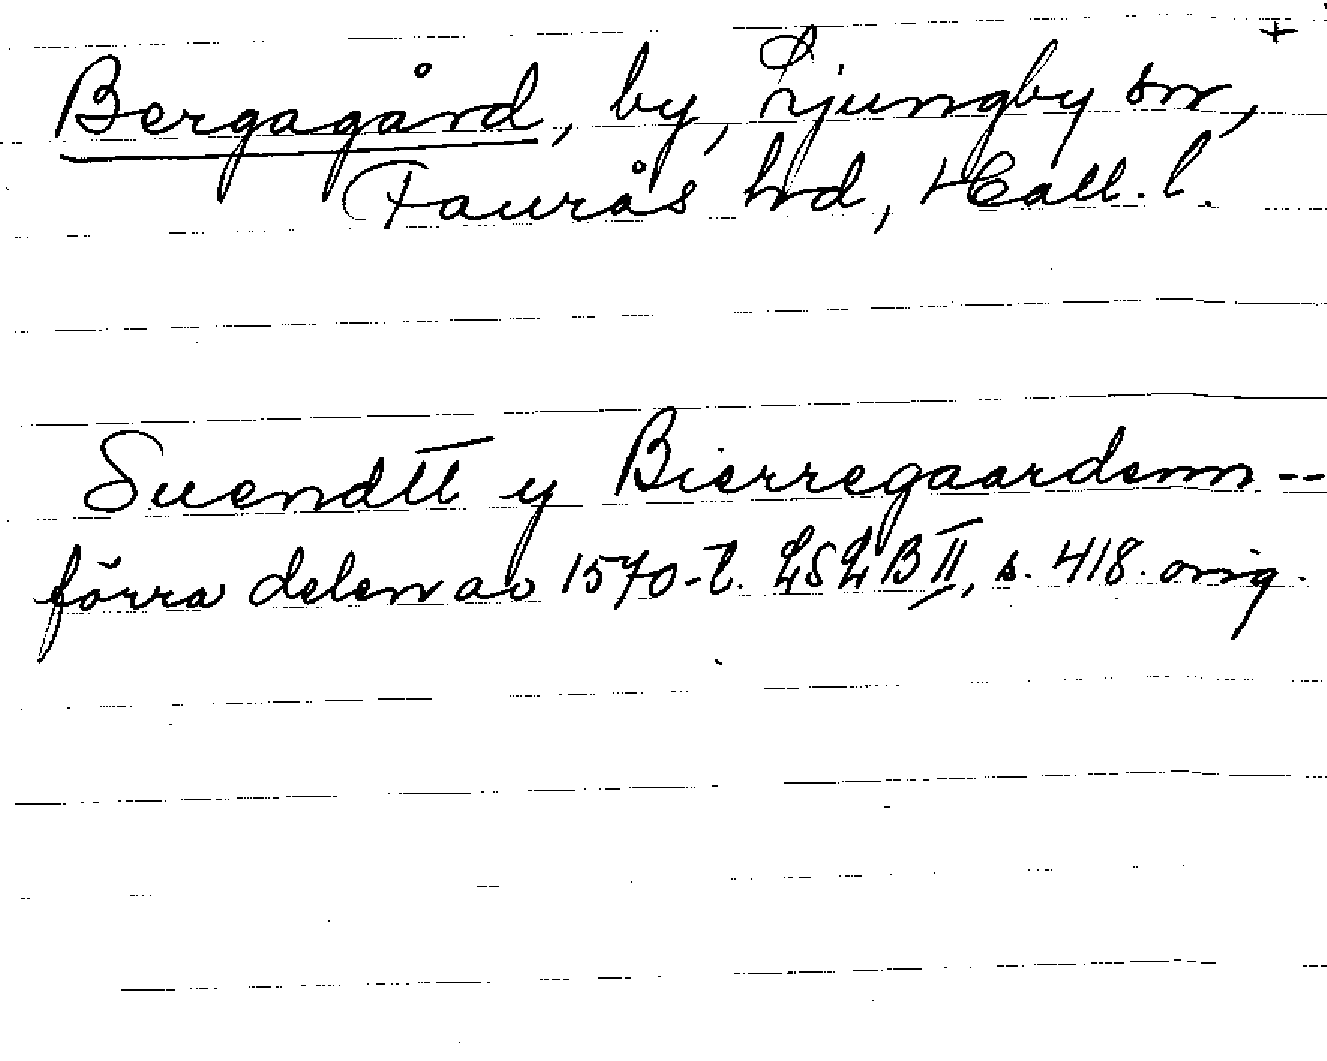 +
Bergagård, by, Ljungby sn,
Faurås hd, Hall. l.
Suendtt y Bierregaardenn --
förra delen av 1570-t. LSLB II, s. 418. orig.